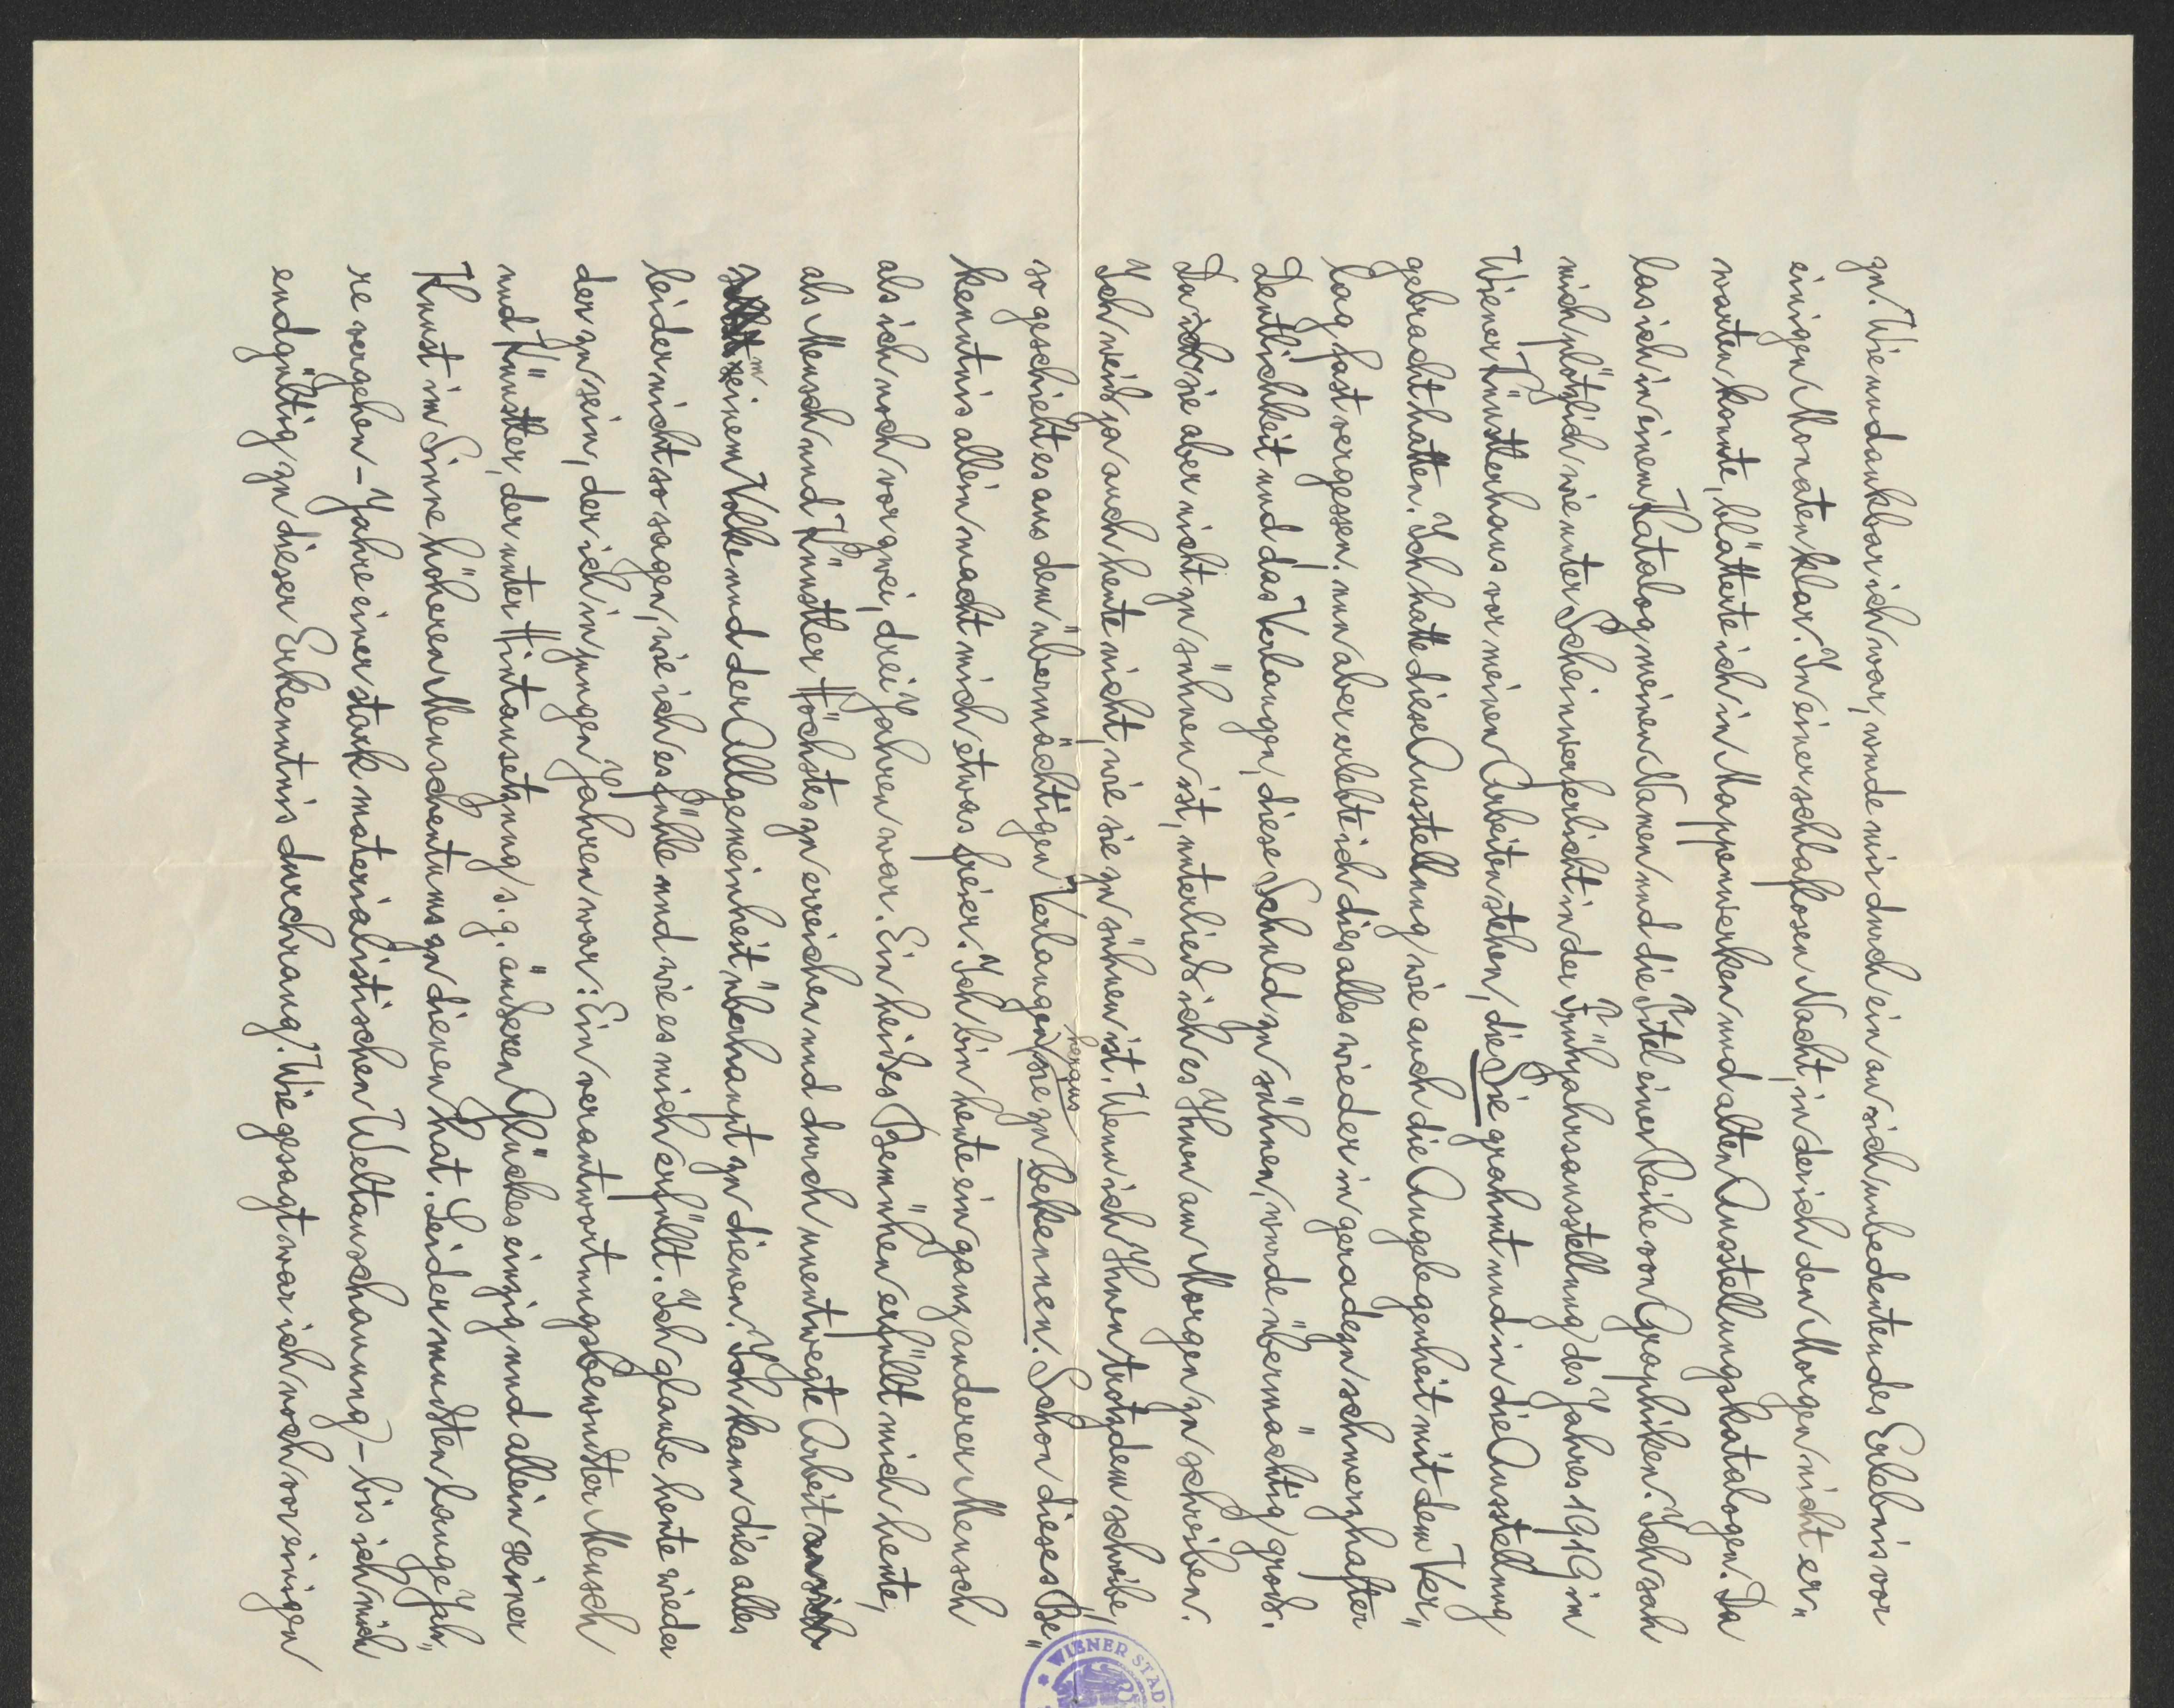 zu. Wie undankbar ich war, wurde mir durch ein an sich unbedeutendes Erlebnis vor
einigen Monaten klar. In einer schlaflosen Nacht, in der ich den Morgen nicht er„
warten konnte, blätterte ich in Mappenwerken und alten Ausstellungskatalogen. Da
las ich in einem Katalog meinen Namen und die Titel einer Reihe von Graphiken. Ich sah
mich plötzlich wie unter Scheinwerferlicht in der Frühjahrsausstellung des Jahres 1919 im
Wiener Künstlerhaus vor meinen Arbeiten stehen, die Sie grahmt und in die Ausstellung
gebracht hatten. Ich hatte diese Ausstellung wie auch die Angelegenheit mit dem Ver„
lag fast vergessen. nun aber erlebte ich dies alles wieder in geradezu schmerzhafter
Deutlichkeit und das Verlangen, diese Schuld zu sühnen, wurde übermächtig groß.
Da ich sie aber nicht zu sühnen ist, unterließ ich es Ihnen am Morgen zu schreiben.
Ich weiß ja auch heute nicht, wie sie zu sühnen ist. Wenn ich Ihnen trotzdem schreibe,
so geschieht es aus dem übermächtigen Verlangen heraus sie zu bekennen. Schon dieses Be„
kenntnis allein macht mich etwas freier. Ich bin heute ein ganz anderer Mensch
als ich noch vor zwei, drei Jahren war. Ein heißes Bemühen erfüllt mich heute,
als Mensch und Künstler Höchstes zu erreichen und durch unentwegte Arbeit an sich
selbst seinem Volke und der Allgemeinheit überhaupt zu dienen. Ich kann dies alles
leider nicht so sagen, wie ich es fühle und wie es mich erfüllt. Ich glaube heute wieder
der zu sein, der ich in jungen Jahren war: Ein verantwortungsbewußter Mensch
und Künstler, der unter Hintansetzung s. g. äußeren Glückes einzig und allein seiner
Kunst im Sinne höheren Menschentums zu dienen hat. Leider mußten lange Jah„
re vergehen – Jahre einer stark materialistischen Weltanschauung – bis ich mich
endgültig zu dieser Erkenntnis durchrang. Wie gesagt war ich noch vor einigen
WIENER STAD